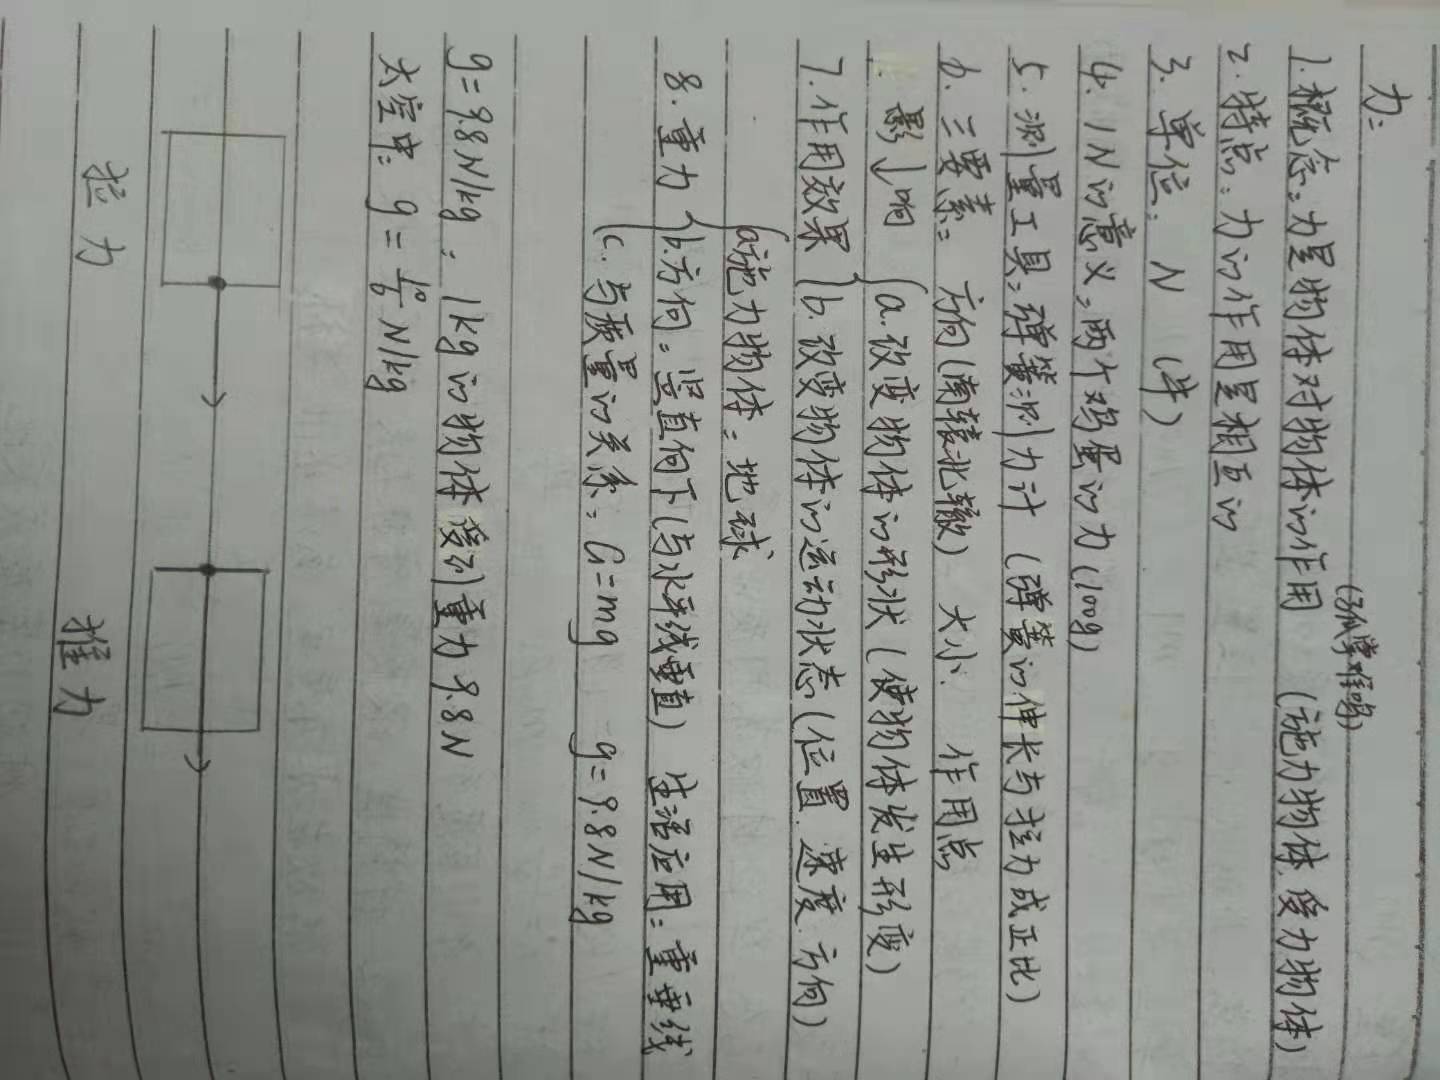 力:
(孤掌难鸣)
1.概念:力是物体对物体的作用 (施力物体.受力物体)
2.特点:力的作用是相互的
3.单位:N (牛)
4.1N的意义:两个鸡蛋的力(100g)
5.测量工具:弹簧测力计 (弹簧的伸长与拉力成正比)
6.三要素:方向(南辕北辙) 大小. 作用点
影响
7.作用效果
a.改变物体的形状(使物体发生形变)
b.改变物体的运动状态(位置.速度.方向)
8.重力
a.施力物体:地球
b.方向:竖直向下(与水平线垂直) 生活应用:重垂线
c.与质量的关系:G=mg g=9.8N/kg
g=9.8N/kg: 1kg的物体受到重力9.8N
太空中: g=10/6 N/kg
拉力 推力